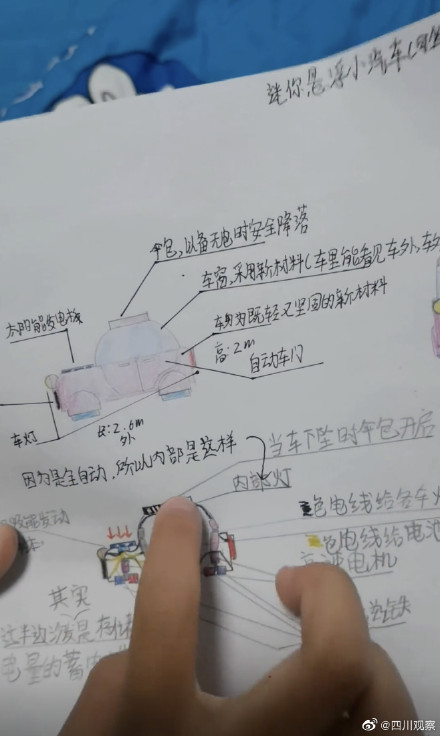 迷你悬浮小汽车(
伞包,以备无电时安全降落
车窗,采用新材料(车里能看见车外,车外
太阳能发电板
车身为既轻又坚固的新材料
高:2m
自动车门
车灯
长:2.6m
外
因为是全自动,所以内部是这样
当车下坠时伞包开启
内部灯
色电线给各车灯
色电线给电池
电机
其实
这半边该是有
电量的蓄
@四川观察